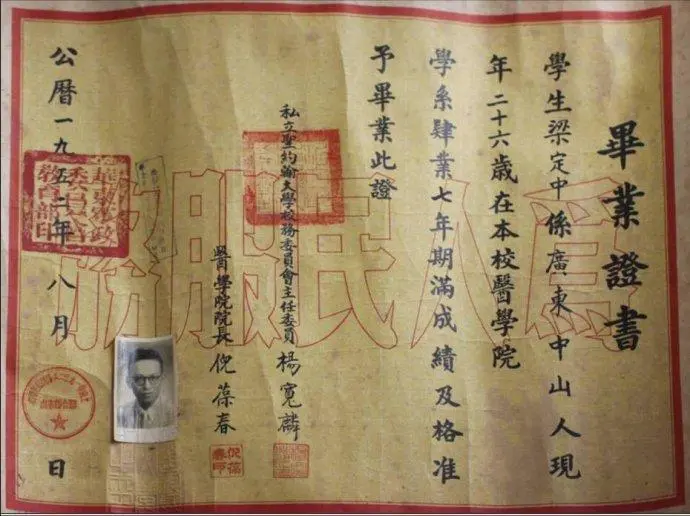 畢業證書
學生梁定中係廣東中山人現
年二十六歲在本校醫學院
學系肄業七年期滿成績及格准
予畢業此證
私立聖約翰大學校務委員會主任委員楊寬麟
醫學院院長倪葆春
公曆一九五二年八月 日
為人民服務
倪葆春印